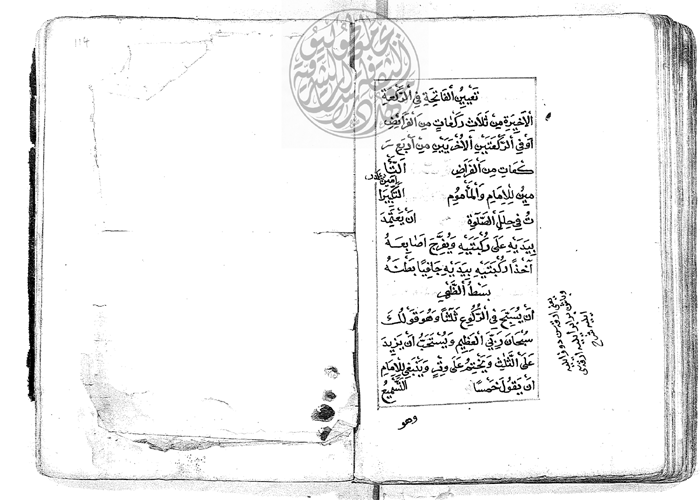 تَعْيِينُ الْفَاتِحَةِ فِي الرَّكْعَةِ
الْأَخِيرَةِ مِنْ ثَلَاثِ رَكَعَاتٍ مِنَ الْفَرَائِضِ
أَوْ فِي الرَّكْعَتَيْنِ الْأُخْرَيَيْنِ مِنْ أَرْبَعِ رَ
كَعَاتٍ مِنَ الْفَرَائِضِ التَّأْ
مِينُ لِلْإِمَامِ وَالْمَأْمُومِ التَّكْبِيرَا
تُ فِي خِلَلِ الصَّلَوةِ أَنْ يَعْتَمِدَ
بِيَدَيْهِ عَلَى رُكْبَتَيْهِ وَيُفَرِّجَ أَصَابِعَهُ
آخِذًا رُكْبَتَيْهِ بِيَدَيْهِ جَافِيًا بَطْنَهُ
بَسْطُ الظَّهْرِ
أَنْ يُسَبِّحَ فِي الرُّكُوعِ ثَلَثًا وَهُوَ قَوْلُكَ
سُبْحَانَ رَبِّيَ الْعَظِيمِ وَيُسْتَحَبُّ أَنْ يَزِيدَ
عَلَى الثَّلَثِ وَيَخْتِمُ عَلَى وِتْرٍ وَيَنْبَغِي لِلْإِمَامِ
أَنْ يَقُولَ خَمْسًا التَّسْمِيعُ
وهو